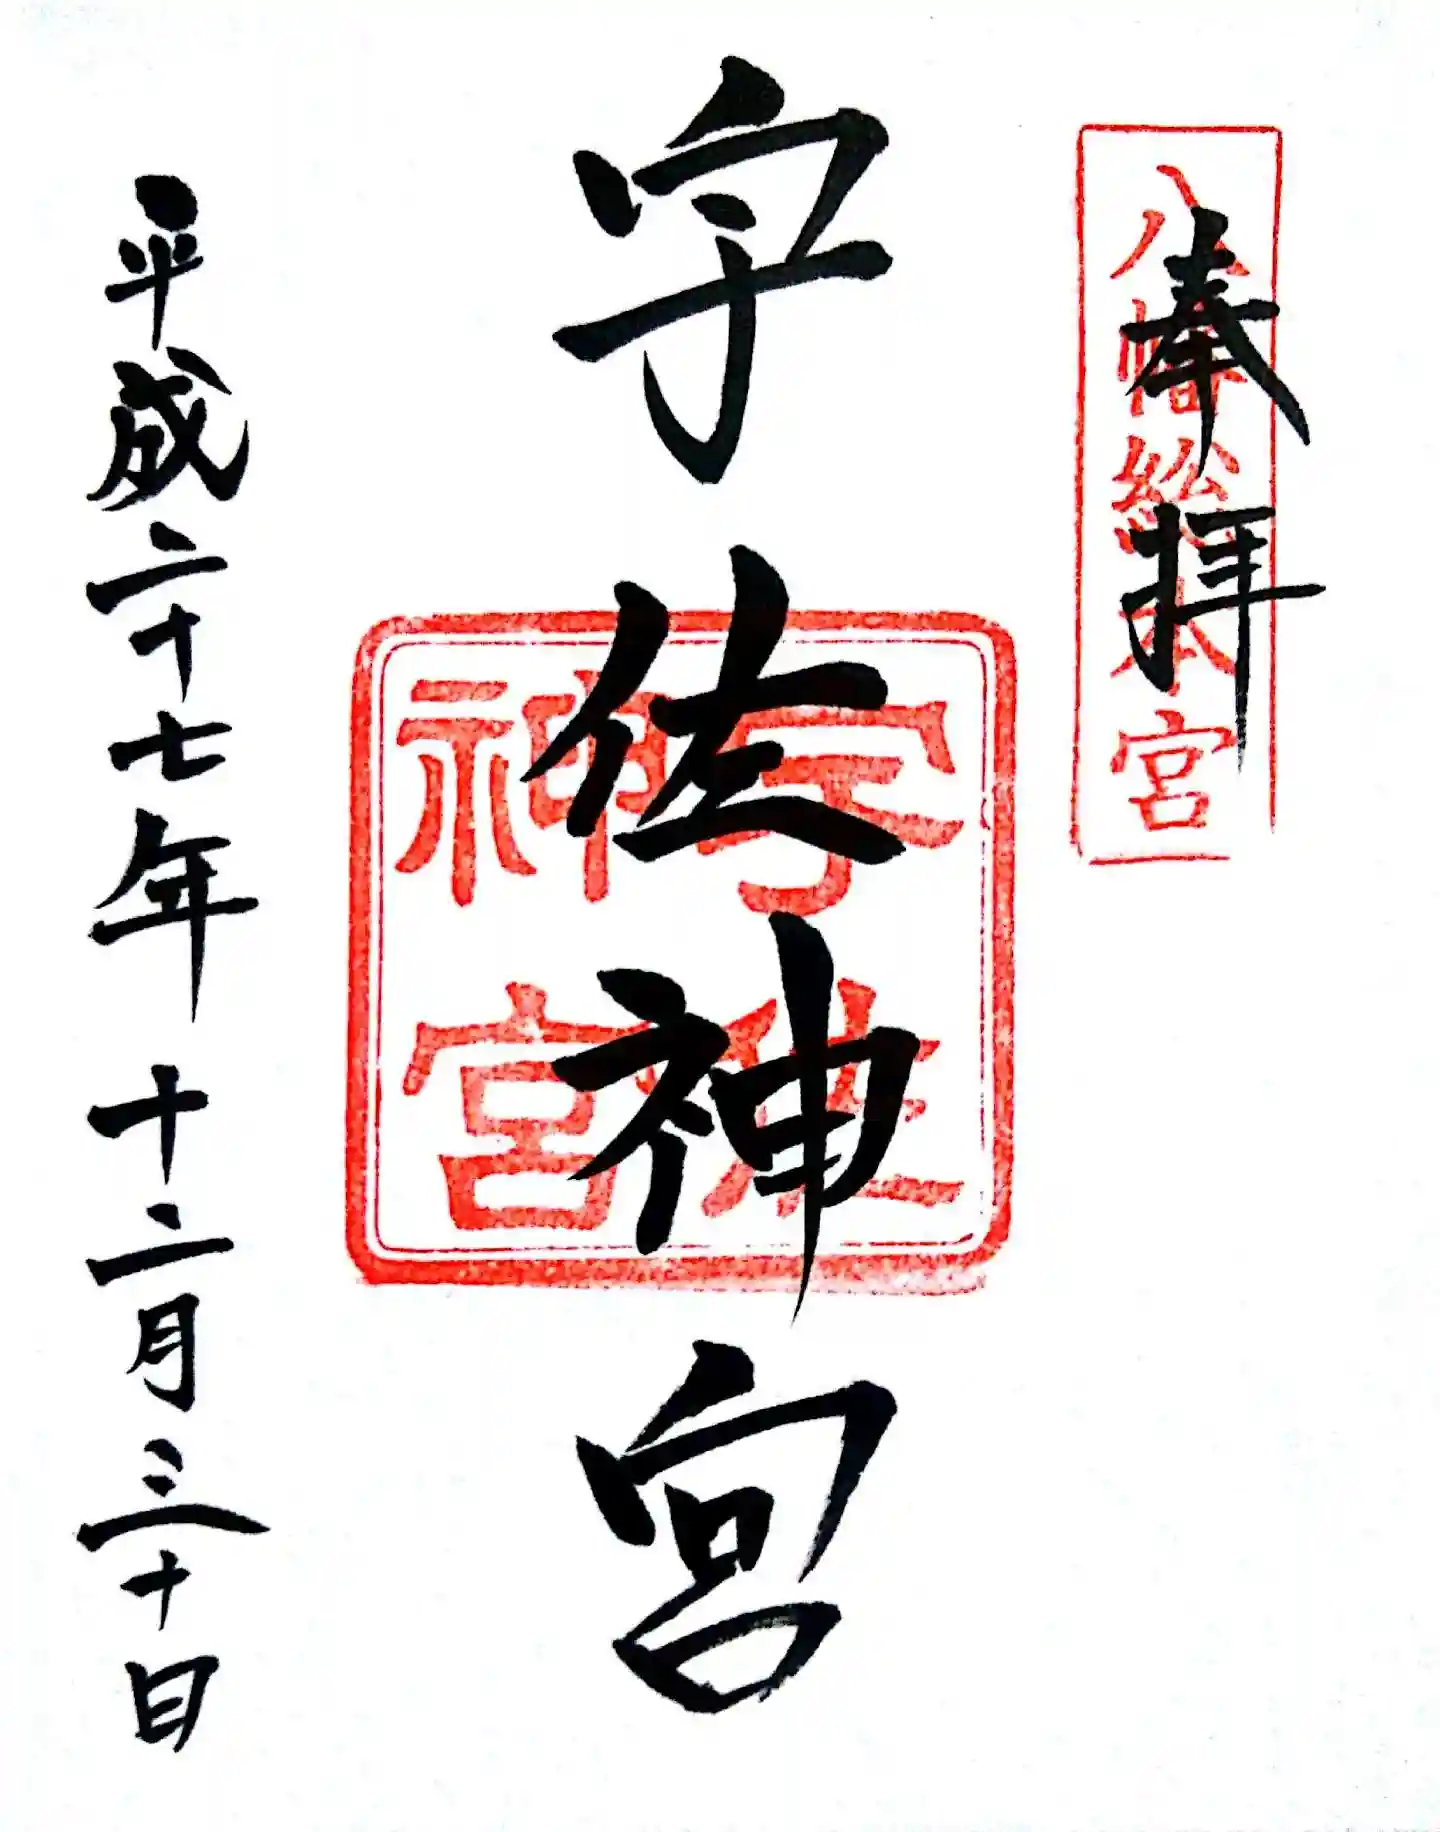 奉拝
八幡総本宮
宇佐神宮
宇佐
神宮
平成二十七年十二月三十日